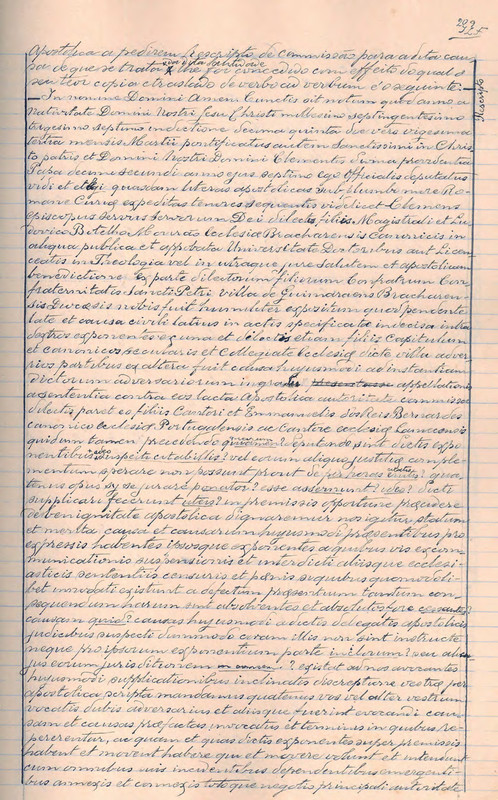 292
Rescripto
Apostolica a pedirem Rescripto de commissão para a dita cau-
sa de que se trata sua dita Santidade lhe foi concedido com effeito do qual o
seu teor copia e traslado de verbo ad verbum é o seguinte:
— In nomine Domini Amen Cunctis sit notum quod anno a
nativitate Domini Nostri Jesu Christi millesimo septingentesimo
trigesimo septimo indictione decima quinta die vero vigesima
tertia mensis Martii pontificatus autem Sanctissimi in Chris
to patris et Domini Nostri Domini Clementis divina providentia
Papa duodecimi anno ejus septimo ego Officialis deputatus
vidi et legi quasdam literas apostolicas sub plumbo more Ro-
mane Curiæ expeditas tenores sequentis videlicet = Clemens
episcopus servus servorum Dei dilectis filiis Magistrali et Lu-
dovico Botelho Mourão Ecclesiæ Bracharensis Canonicis in
aliqua publica et approbata Universitate Doctoribus aut Licen
ciatos in Theologia vel in utroque jure salutem et apostolicam
benedictione Ex parte dilectorum filiorum Confratrum Con-
fraternitatis Sancti Petri villa de Guimaraens Bracharen-
sis Diocesis nobis fuit humiliter expositum quod pendente
lite et causa civili latius in actis specificata indecisa intra
dictos exponentes ex una et dilectos etiam filiis Capitulum
et canonicos seculares et Collegiate Ecclesiæ dicte villæ adver
rios partibus ex altera fuit causa hujusmodi ad instantiam
dictorum adversariorum in gradu appellationis
a sententia contra eos lacta Apostolica autoritate commissa
dilectis pariter filiis Cantori et Emmanuelis dos Reis Bernardes
canonico Ecclesiæ Portugalensis ac Cantore ecclesiæ Lamecensis
quidem tamen precedendo Et quando sint dictis expo-
nentibus adeo suspecti ut ab illis? vel eorum aliquo justitiæ comple-
mentum sperare non possunt prout de
tenus opus sit se jurare paratos? esse asserunt ideo? dicti
supplicari fecerunt uteis? in premissis opportune providere
de benignitate apostolica dignaremur nos igitur statum
et merita causa et causarum hujusmodi præsentibus pro
expressis habentes ipsosque exponentes a quibus vis excom-
municationis suspensionis et interdicti aliisque ecclesi-
asticis sententiis censuris et pænis si quibus quomodoli-
bet innodati existunt a defectum præsentium tantum con-
sequendum harum sint absolventes et absolutos fore censentes?
causam quid? causas hujusmodi a dictis delegatis apostolicis
judicibus suspecti dummodo coram illis non sint instructe
neque pro ipsorum exponentium parte in illorum? seu alicu-
jus eorum jurisdictionem ? existat ad nos avocantes
hujusmodi supplicationibus inclinatis discretione vestræ per
apostolica scripta mandamus quatenus vos vel alter vestrum
vocatis dubis adversarios et aliisque fuerint evocandi cau-
sam et causas præfactas invocatus et terminus in quibus re-
pererentur, ac quam et quas dictis exponentes super premissis
habent et movent habere que et movere volunt et intensunt
cum omnibus suis incidentibus dependentibus emergenti-
bus annexis et connexis totoque negotio principali autoritate